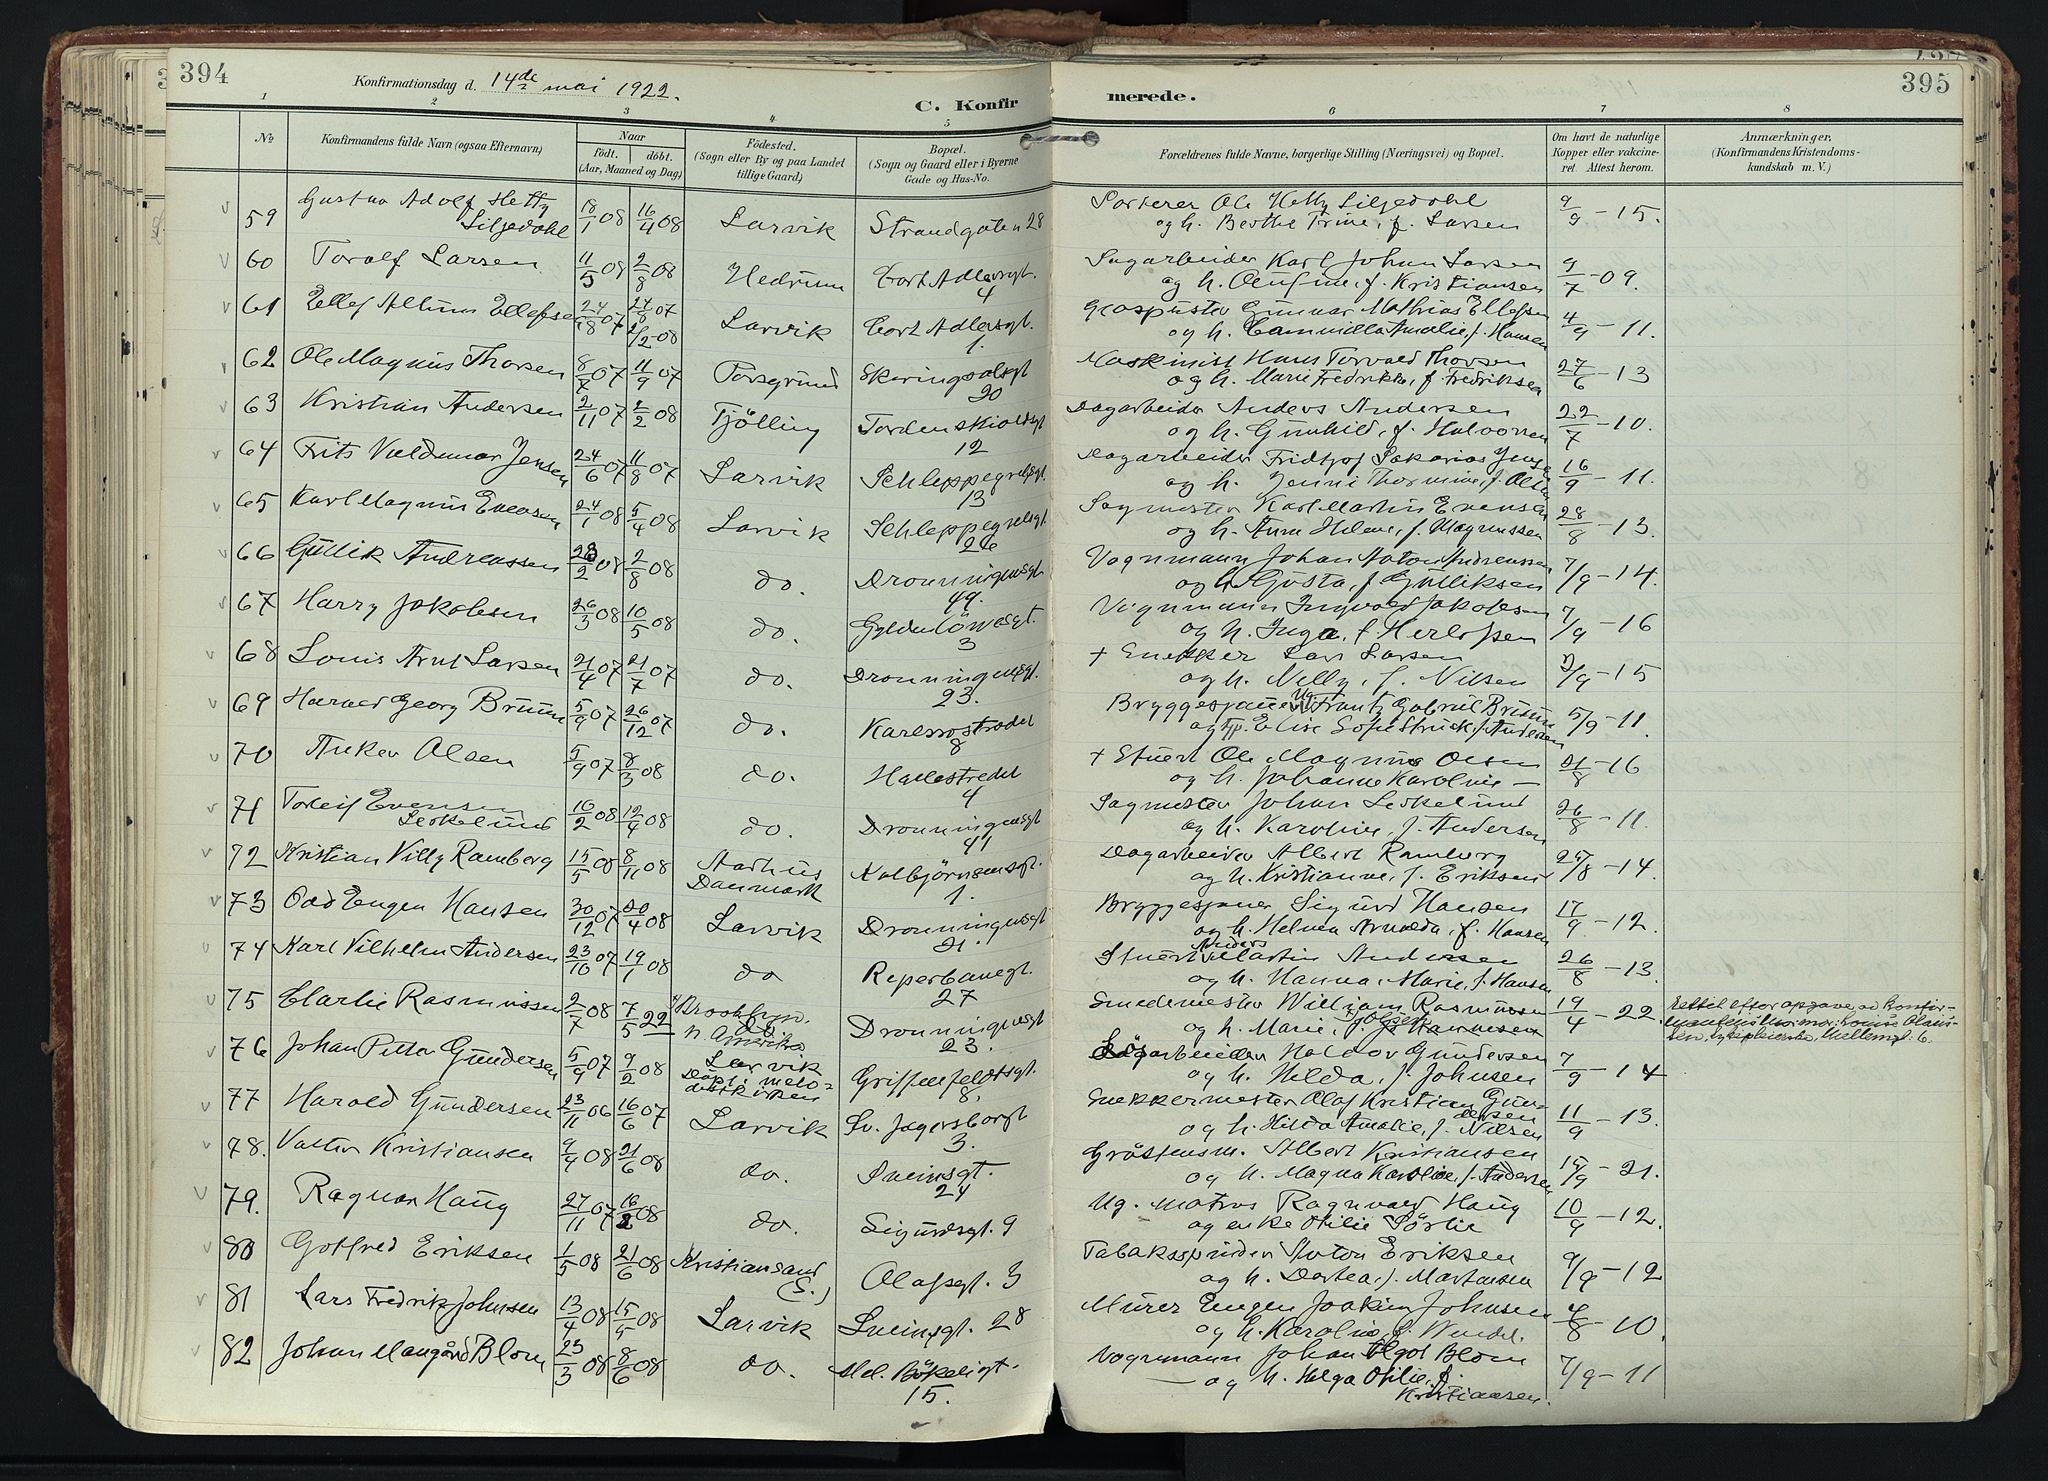 394
395
Konfirmationsdag d. 14de mai 1922.
C. Konfir merede.
1 2 3 4 5 6 7 8
No.
Konfirmandens fulde Navn (ogsaa Efternavn)
Naar
födt. döbt.
(Aar, Maaned og Dag)
Födested.
(Sogn eller By og paa Landet
tillige Gaard)
Bopæl.
(Sogn og Gaard eller i Byerne
Gade og Hus-No.
Forældrenes fulde Navne, borgerlige Stilling (Næringsvei) og Bopæl.
Om havt de naturlige
Kopper eller vakcine-
ret Attest herom.
Anmærkninger.
(Konfirmandens Kristendoms-
kundskab m. V.)
59 Gustav Adolf Hetty Siljedahl 18/1 08 16/4 08 Larvik Strandgaten 28 Sorterer Ole Hetty Siljedahl 9/9 - 15.
og h. Berthe Trine, f. Larsen
60 Toralf Larsen 11/5 08 2/8 08 Hedrum Cort Adlersgt. 4 Sagarbeider Karl Johan Larsen 9/7 - 09.
og h. Olufine, f. Kristiansen
61 Ellef Ellefsen 07 07 2/2-08 Larvik Cort Adlersgt. 1. Gunnar Mathias Ellefsen 4/9 - 11.
og h. Cammilla Amalie, f. Hansen
62 Ole Magnus Thorsen 8/7 07 11/9 07 Porsgrund Skiringsalsgt 20 Maskinist Hans Torvald Thorsen 27/6 - 13
og h. Marie Fredrikke, f. Fredriksen
63 Kristian Andersen 2/11 07 2/2 08 Tjölling Tordenskioldsgt 12 Dagarbeider Anders Andersen 22/7 - 10.
og h. Gunhild, f. Halvorsen
64 Frits Valdemar Jensen 24/6 07 11/8 07 Larvik Schleppegrelsgt. 13 Dagarbeider Fridtjof Sakarias Jensen 16/9 - 11.
og h. Jenni Thormine, f. Olsen
65 Karl Magnus Evensen 24/1 08 5/4 08 Larvik Schleppegrelsgt. 26 Sagmester Karl Martin Evensen 28/8 - 13.
og h. Anna Helene, f. Magnussen
66 Gullik Andreassen 08 2/8 08 do. Dronningensgt. 49. Vognmann Johan Anton Andreassen 7/9 - 14.
og h. Gusta, f. Gulliksen
67 Harry Jakobsen 26/3 08 10/5 08 do. Gyldenlövesgt. 3 Vognmann Ingvald Jakobsen 7/9 - 16
og h. Inga, f. Herlofsen
68 Louis Arnt Larsen 21/4 07 21/7 07 do. Dronningensgt. 23. + Snekker Lars Larsen 2/9 - 15
og h. Nelly, f. Nilsen
69 Harald Georg Bruun 5/9 07 26/12 07 do. Karlsrostrædet 8 Bryggesjauer Ug. Frantz Gabriel Bruun 5/9 - 11.
og Fp. Elise Sofie Struck, f. Andersen
70 Anker Olsen 5/9 07 8/3 08 do. Hallestredet 4 + Stuert Ole Magnus Olsen 21/8 - 16
og h. Johanne Karoline —
71 Toleif Evensen Seskelund 16/2 08 12/4 08 do. Dronningensgt 41 Sagmester Johan Seskelund 26/8 - 11.
og h. Karoline, f. Andersen
72 Kristian Villy Ramberg 15/5 08 8/11 08 Aarhus Danmark Kolbjörnsensgt. 1. Dagarbeider Albert Ramberg 25/8 - 14.
og h. Kristianne, f. Eriksen
73 Odd Eugen Hansen 30/12 07 20/4 08 Larvik Dronningensgt 21. Bryggesjauer Sigurd Hansen 17/9 - 12.
og h. Helnea Arnalda, f. Hansen
74 Karl Vilhelm Andersen 23/10 07 19/1 08 do Reperbanegt. 27 Stuert Anders Martin Andersen 26/8 - 13.
og h. Hanna Marie, f. Hansen
75 Charlie Rasmussen 2/7 08 7/5 22 Brooklyn. N. Amerika Dronningensgt 23. Smedemester William Rasmussen 19/4 - 22.
og h. Marie,
Settel efter opgave av konfir-
mantens mormor Louise Claus-
sen, sykepleierske, Mellemgt. 6.
76 Johan Petter Gundersen 5/9 07 9/2 08 Larvik Döpt i meto-
distkirken Griffenfeldtsgt. 8. Sagarbeider Haldor Gundersen 7/9 - 14
og h. Hilda, f. Johnsen
77 Harald Gundersen 23/11 06 16/6 07 Larvik Sv. Jagersborgt 3. Snekkermester Olaf Kristian Gun-
dersen 11/9 - 13.
og h. Hilda Amalie, f. Nilsen
78. Valter Kristiansen 9/4 08 21/6 08 do. Sveinsgt. 24 Gråstensm. Albert Kristiansen 15/9 - 21.
og h. Magna Karolie, f. Andersen
79. Ragnar Haug 27/11 07 16/2 08 do. Sigurdsgt. 9 Ug. matros Ragnvald Haug 10/9 - 12.
og enke Otilie Sørlie
80 Gotfred Eriksen 1/5 08 21/6 08 Kristiansand (S.) Olafsgt. 3 Tabakspinder Anton Eriksen 9/9 - 12
og h. Dortea, f. Martinsen
81 Lars Fredrik Johnsen 13/4 08 15/5 08 Larvik Sveinsgt. 28 Murer Eugen Joakim Johnsen 4/8 - 10.
og h. Karoline, f. Wendel.
82 Johan Maugård Blom 23/3 08 8/6 08 do. Mel. Bökeligt. 15. Vognmann Johan Algot Blom 7/9 - 11
og h. Helga Otilie, f.
Kristiansen.